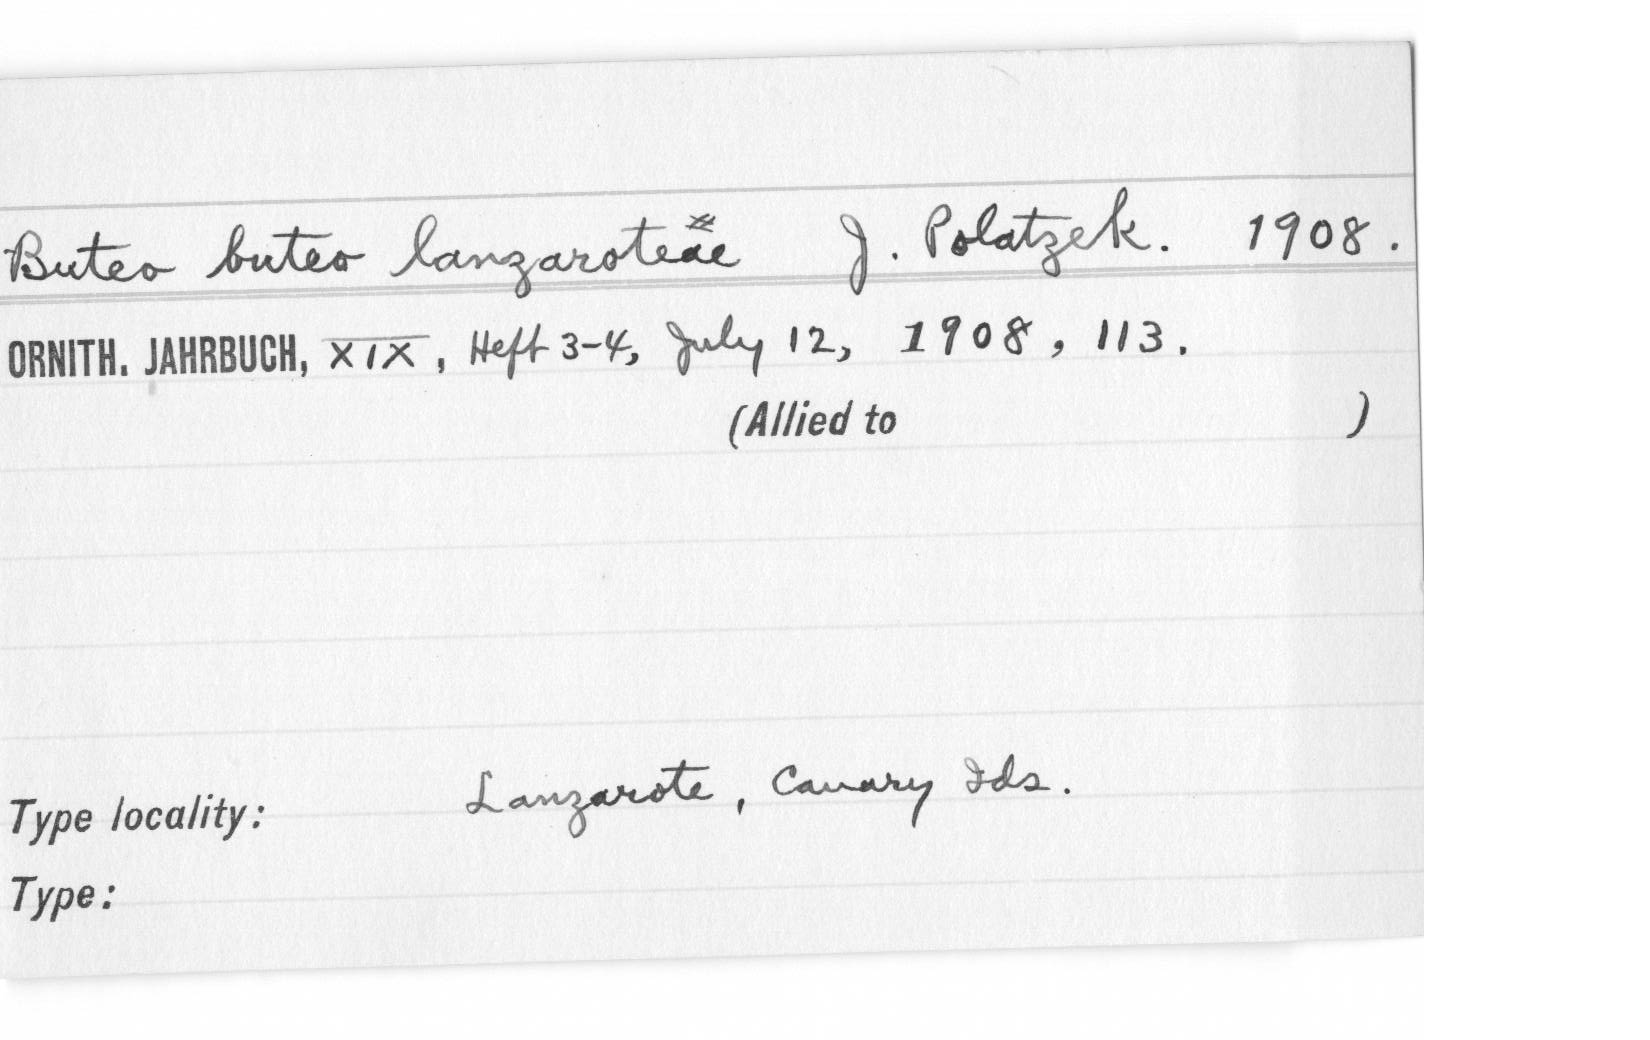 Buteo buteo lanzaroteae J. Polatzek. 1908.
ORNITH. JAHRBUCH, XIX, Heft 3-4, July 12, 1908, 113.
(Allied to )
Type locality: Lanzarote, Canary Ids.
Type: